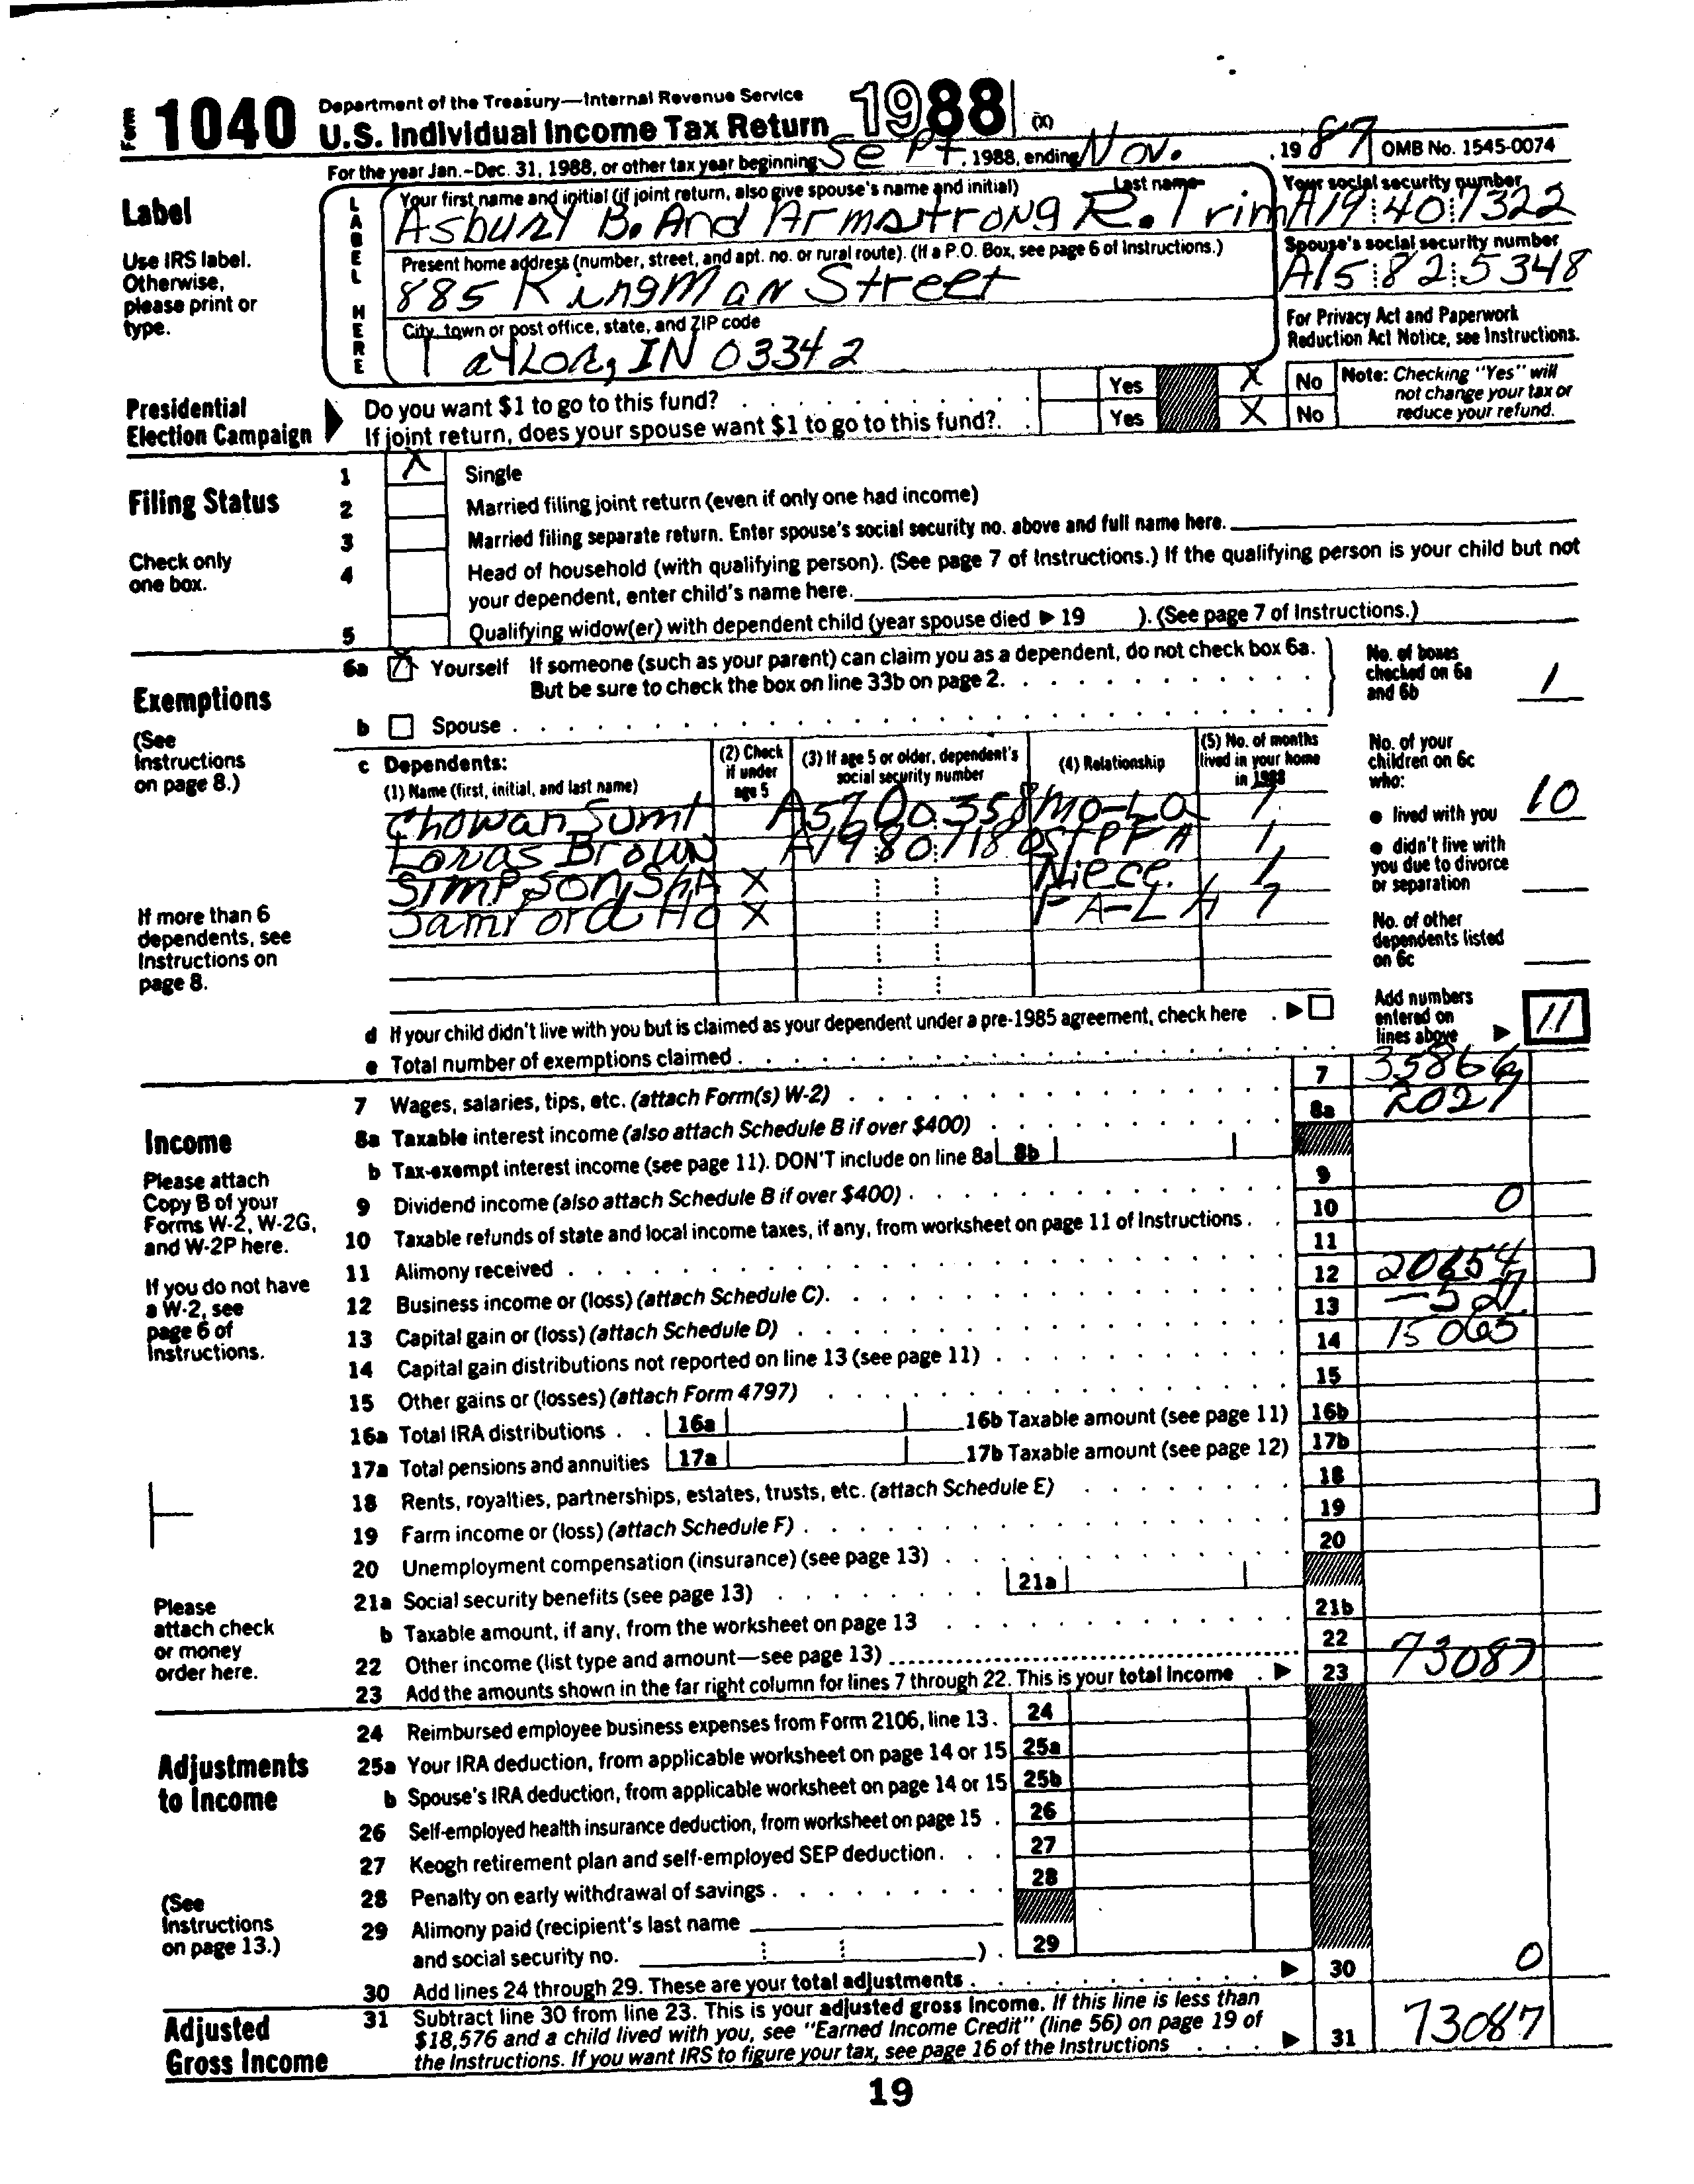 Form 1040 Department of the Treasury—Internal Revenue Service
U.S. Individual Income Tax Return 1988 (X)
For the year Jan.-Dec. 31, 1988, or other tax year beginning Sept , 1988, ending Nov. , 19 87 OMB No. 1545-0074
Label
Use IRS label.
Otherwise,
please print or
type.
LABEL HERE
Your first name and initial (if joint return, also give spouse's name and initial) Last name
Asbury B. And Armstrong R. Trim
Your social security number
A19 40 7322
Present home address (number, street, and apt. no. or rural route). (If a P.O. Box, see page 6 of Instructions.)
885 Kingman Street
Spouse's social security number
A15 82 5348
City, town or post office, state, and ZIP code
Taylor, IN 03342
For Privacy Act and Paperwork
Reduction Act Notice, see Instructions.
Presidential
Election Campaign
Do you want $1 to go to this fund? Yes X No
If joint return, does your spouse want $1 to go to this fund?. Yes X No
Note: Checking "Yes" will
not change your tax or
reduce your refund.
Filing Status
Check only
one box.
1 X Single
2 Married filing joint return (even if only one had income)
3 Married filing separate return. Enter spouse's social security no. above and full name here.
4 Head of household (with qualifying person). (See page 7 of Instructions.) If the qualifying person is your child but not
your dependent, enter child's name here.
5 Qualifying widow(er) with dependent child (year spouse died ▶ 19 ). (See page 7 of Instructions.)
Exemptions
(See
Instructions
on page 8.)
6a X Yourself If someone (such as your parent) can claim you as a dependent, do not check box 6a.
But be sure to check the box on line 33b on page 2.
b Spouse
No. of boxes
checked on 6a
and 6b 1
c Dependents:
(1) Name (first, initial, and last name)
(2) Check
if under
age 5
(3) If age 5 or older, dependent's
social security number
(4) Relationship
(5) No. of months
lived in your home
in 1988
Chowan Sumt A57 00 358 Mo-La 1
Loras Brown A19 80 7180 StPFA 1
Simpson, ShA X Niece. 1
Samford Ho X FA-LA 7
If more than 6
dependents, see
Instructions on
page 8.
No. of your
children on 6c
who:
● lived with you 10
● didn't live with
you due to divorce
or separation
No. of other
dependents listed
on 6c
Add numbers
entered on
lines above ▶ 11
d If your child didn't live with you but is claimed as your dependent under a pre-1985 agreement, check here ▶
e Total number of exemptions claimed
Income
Please attach
Copy B of your
Forms W-2, W-2G,
and W-2P here.
If you do not have
a W-2, see
page 6 of
Instructions.
Please
attach check
or money
order here.
7 Wages, salaries, tips, etc. (attach Form(s) W-2) 7 35866
8a Taxable interest income (also attach Schedule B if over $400) 8a 2027
b Tax-exempt interest income (see page 11). DON'T include on line 8a 8b
9 Dividend income (also attach Schedule B if over $400) 9
10 Taxable refunds of state and local income taxes, if any, from worksheet on page 11 of Instructions 10 0
11 Alimony received 11
12 Business income or (loss) (attach Schedule C). 12 20654
13 Capital gain or (loss) (attach Schedule D) 13 -527
14 Capital gain distributions not reported on line 13 (see page 11) 14 15065
15 Other gains or (losses) (attach Form 4797) 15
16a Total IRA distributions 16a 16b Taxable amount (see page 11) 16b
17a Total pensions and annuities 17a 17b Taxable amount (see page 12) 17b
18 Rents, royalties, partnerships, estates, trusts, etc. (attach Schedule E) 18
19 Farm income or (loss) (attach Schedule F) 19
20 Unemployment compensation (insurance) (see page 13) 20
21a Social security benefits (see page 13) 21a
b Taxable amount, if any, from the worksheet on page 13 21b
22 Other income (list type and amount—see page 13) 22
23 Add the amounts shown in the far right column for lines 7 through 22. This is your total income ▶ 23 73087
Adjustments
to Income
(See
Instructions
on page 13.)
24 Reimbursed employee business expenses from Form 2106, line 13. 24
25a Your IRA deduction, from applicable worksheet on page 14 or 15 25a
b Spouse's IRA deduction, from applicable worksheet on page 14 or 15 25b
26 Self-employed health insurance deduction, from worksheet on page 15 26
27 Keogh retirement plan and self-employed SEP deduction 27
28 Penalty on early withdrawal of savings 28
29 Alimony paid (recipient's last name
and social security no. ) 29
30 Add lines 24 through 29. These are your total adjustments ▶ 30 0
Adjusted
Gross Income
31 Subtract line 30 from line 23. This is your adjusted gross income. If this line is less than
$18,576 and a child lived with you, see "Earned Income Credit" (line 56) on page 19 of
the Instructions. If you want IRS to figure your tax, see page 16 of the Instructions ▶ 31 73087
19